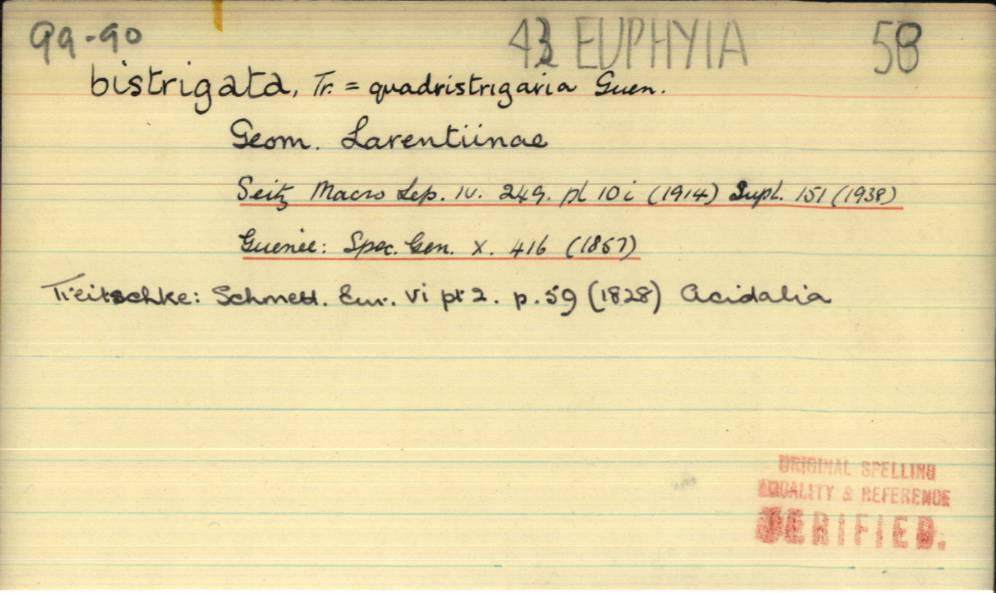 99-90 EUPHYIA 58
bistrigata, Tr. = quadristrigaria Guen.
Geom. Larentiinae
Seitz Macro Lep. IV. 249. pl 10 i (1914) Supl. 151 (1938)
Guenée: Spec. Gen. X. 416 (1857)
Treitschke: Schmett. Eur. Vi pt 2. p. 59 (1828) Acidalia
ORIGINAL SPELLING
LOCALITY & REFERENCE
VERIFIED.